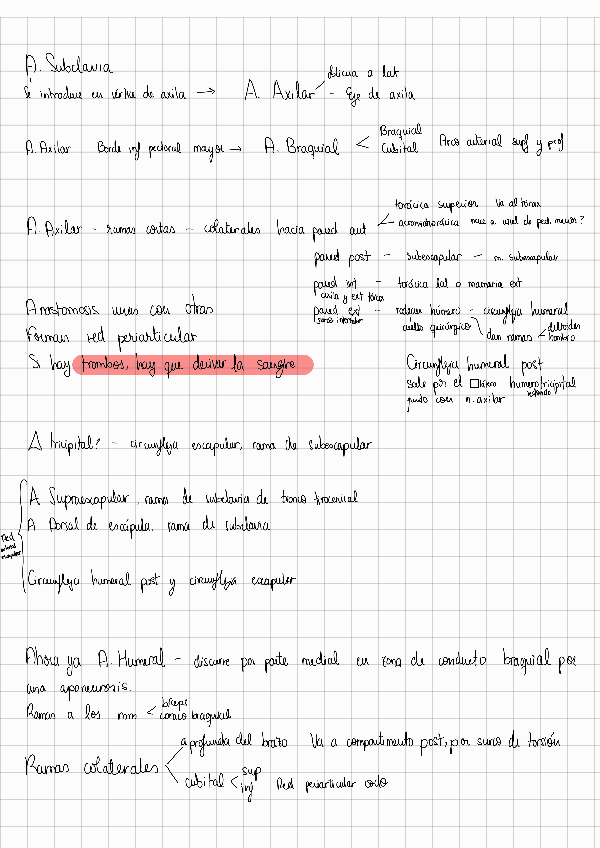 A. Subclavia
Se introduce en vértice de axila → A. Axilar discurre a lat
- Eje de axila
A. Axilar Borde inf pectoral mayor → A. Braquial < Braquial
Cubital
Arco arterial sup y prof
A. Axilar - ramas cortas - colaterales hacia pared ant
torácica superior Va al tórax
acromiotorácica nace a nivel de pect menor?
pared post - subescapular - m. subescapular
pared int - torácica lat o mamaria ext
Anastomosis unas con otras
pared ext - rodean húmero - circunfleja humeral
cuello quirúrgico
dan ramas < deltoides
hombro
Forman red periarticular
Si hay trombos, hay que derivar la sangre
Circunfleja humeral post
sale por el □ humerotricipital
redondo
junto con n. axilar
△ tricipital? - circunfleja escapular, rama de subescapular
A Supraescapular, rama de subclavia de tronco tirocervical
A Dorsal de escápula, rama de subclavia
Red
Circunfleja humeral post y circunfleja escapular
Ahora ya A. Humeral - discurre por parte medial en zona de conducto braquial por
una aponeurosis.
Ramas a los mm < bíceps
coraco braquial
Ramas colaterales
a profunda del brazo Va a compartimento post, por surco de torsión
cubital < sup
inf
Red periarticular codo